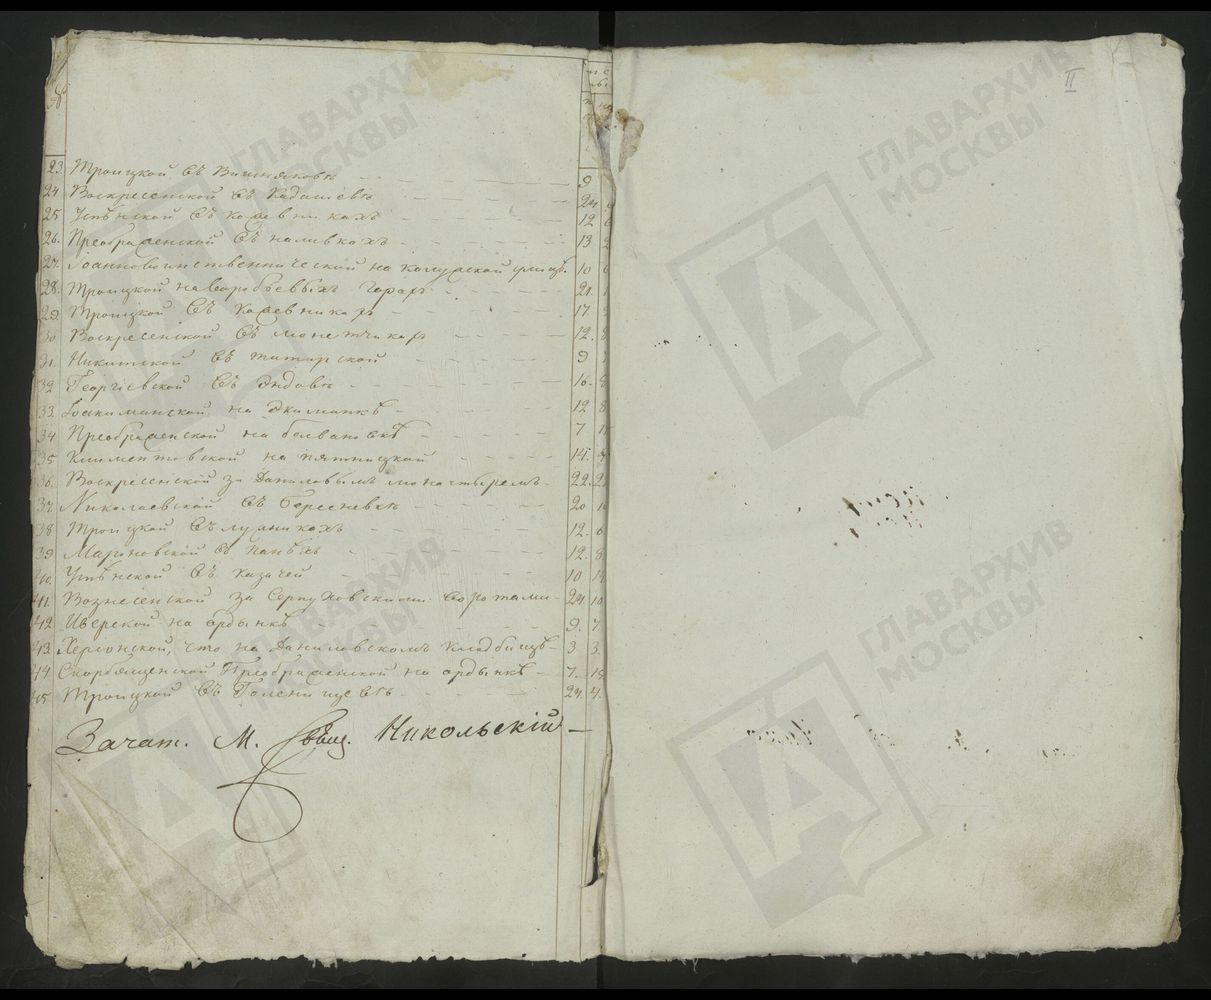 II
23. Троицкой въ Вишняковѣ 9
24 Воскресенской въ Кадашевѣ 24
25 Успѣнской въ Кожевникахъ 12
26. Преображенской въ наливкахъ 13
27. Іоанновоинственнической на Калужской улицѣ 10
28. Троицкой на Воробьевыхъ Горахъ 21
29 Троицкой въ Кожевникахъ 17
30 Воскресенской въ монетчикахъ 12. 8
31. Никитской въ татарской 9
32 Георгіевской въ Эндовѣ 16
33. Іоакиманской на Якиманкѣ 12 8
34 Преображенской на болвановкѣ 7
35 Климентовской на пятницкой 14.
36. Воскресенской за Даниловымъ монастыремъ 22.
37. Николаевской въ Берсеневкѣ 20
38 Троицкой въ лужникахъ 12. 6
39 Мароновской въ панѣхъ 12. 8
40. Успѣнской въ Казачей 10
41. Вознесенской за Серпуховскими воротами 24. 10
42 Иверской на ордынкѣ 9. 7.
43. Херсонской, что на Даниловскомъ Кладбищѣ 3 3.
44 Скорбященской Преображенской на ордынкѣ 7. 15
45 Троицкой въ Голенищевѣ 24. 4.
Зачат. М. Свящ. Никольскій
ГЛАВАРХИВ
МОСКВЫ
ГЛАВАРХИВ
МОСКВЫ
ГЛАВАРХИВ
МОСКВЫ
ГЛАВАРХИВ
МОСКВЫ